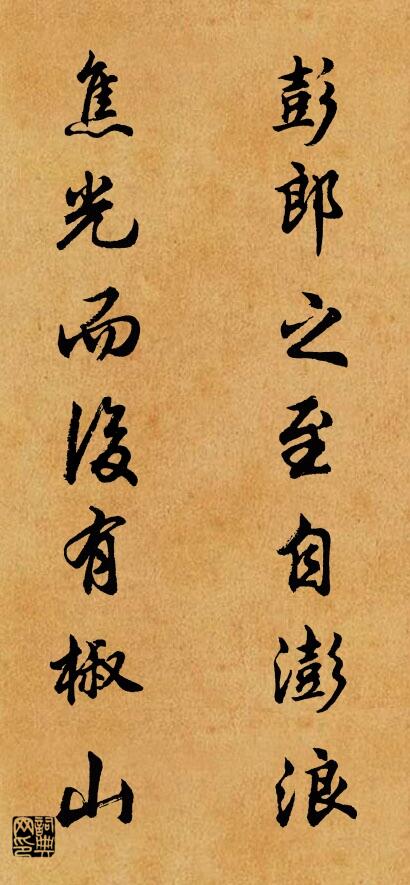 彭郎之至自澎浪
焦光而後有椒山
詞典
网印